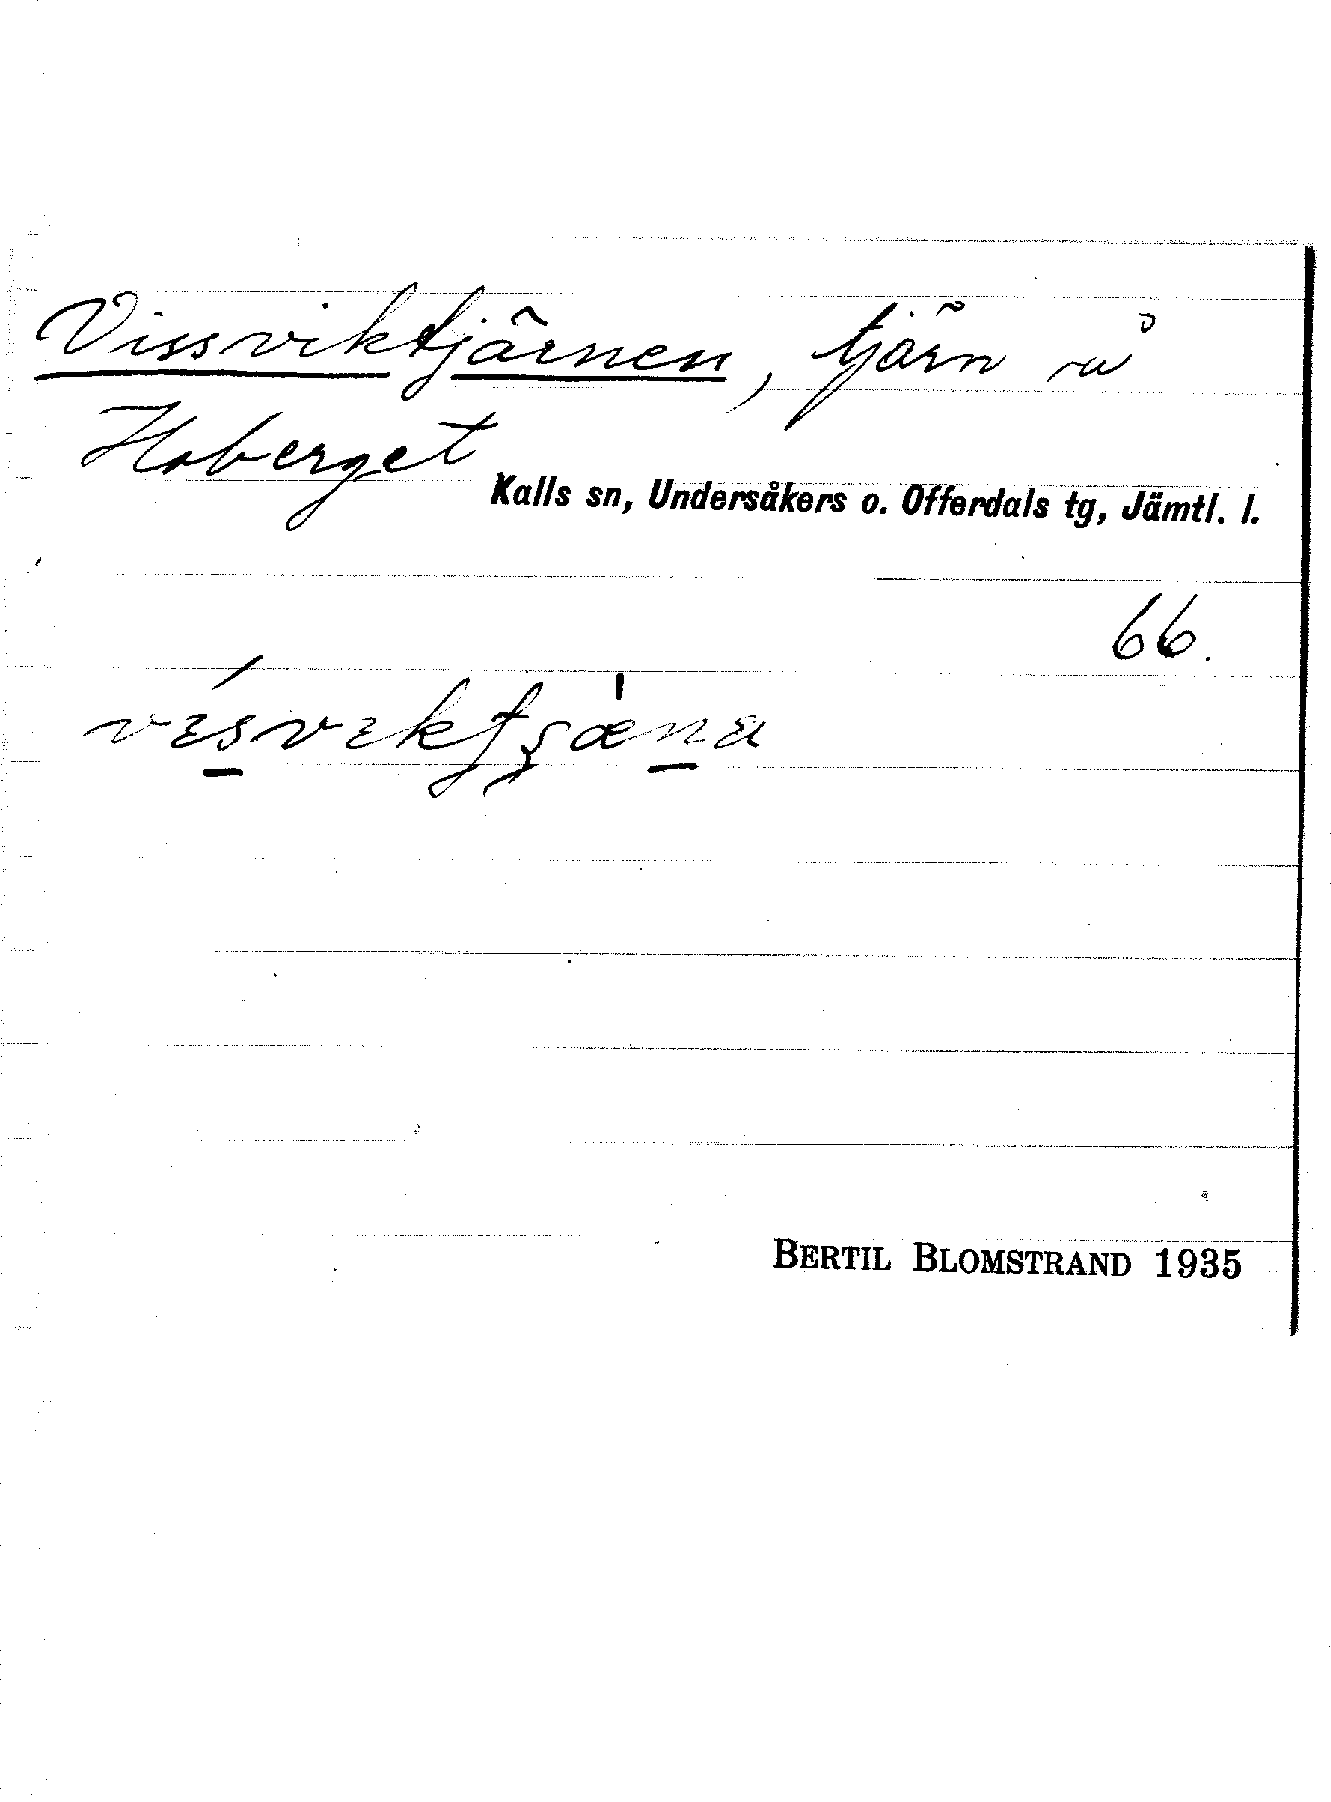 Vissviktjärnen, tjärn å
Hoberget
Kalls sn, Undersåkers o. Offerdals tg, Jämtl. l.
66.
BERTIL BLOMSTRAND 1935